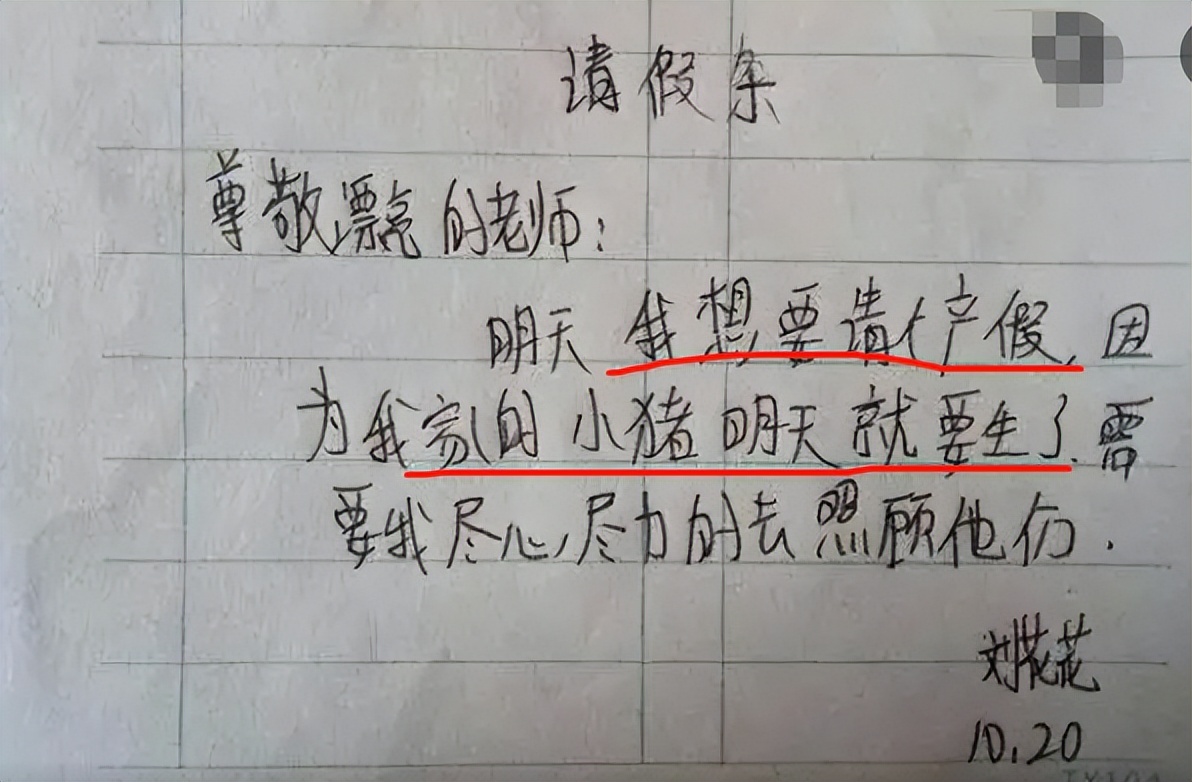 请假条
尊敬漂亮的老师:
明天我想要请产假,因
为我家的小猪明天就要生了.需
要我尽心,尽力的去照顾他们.
刘花花
10.20